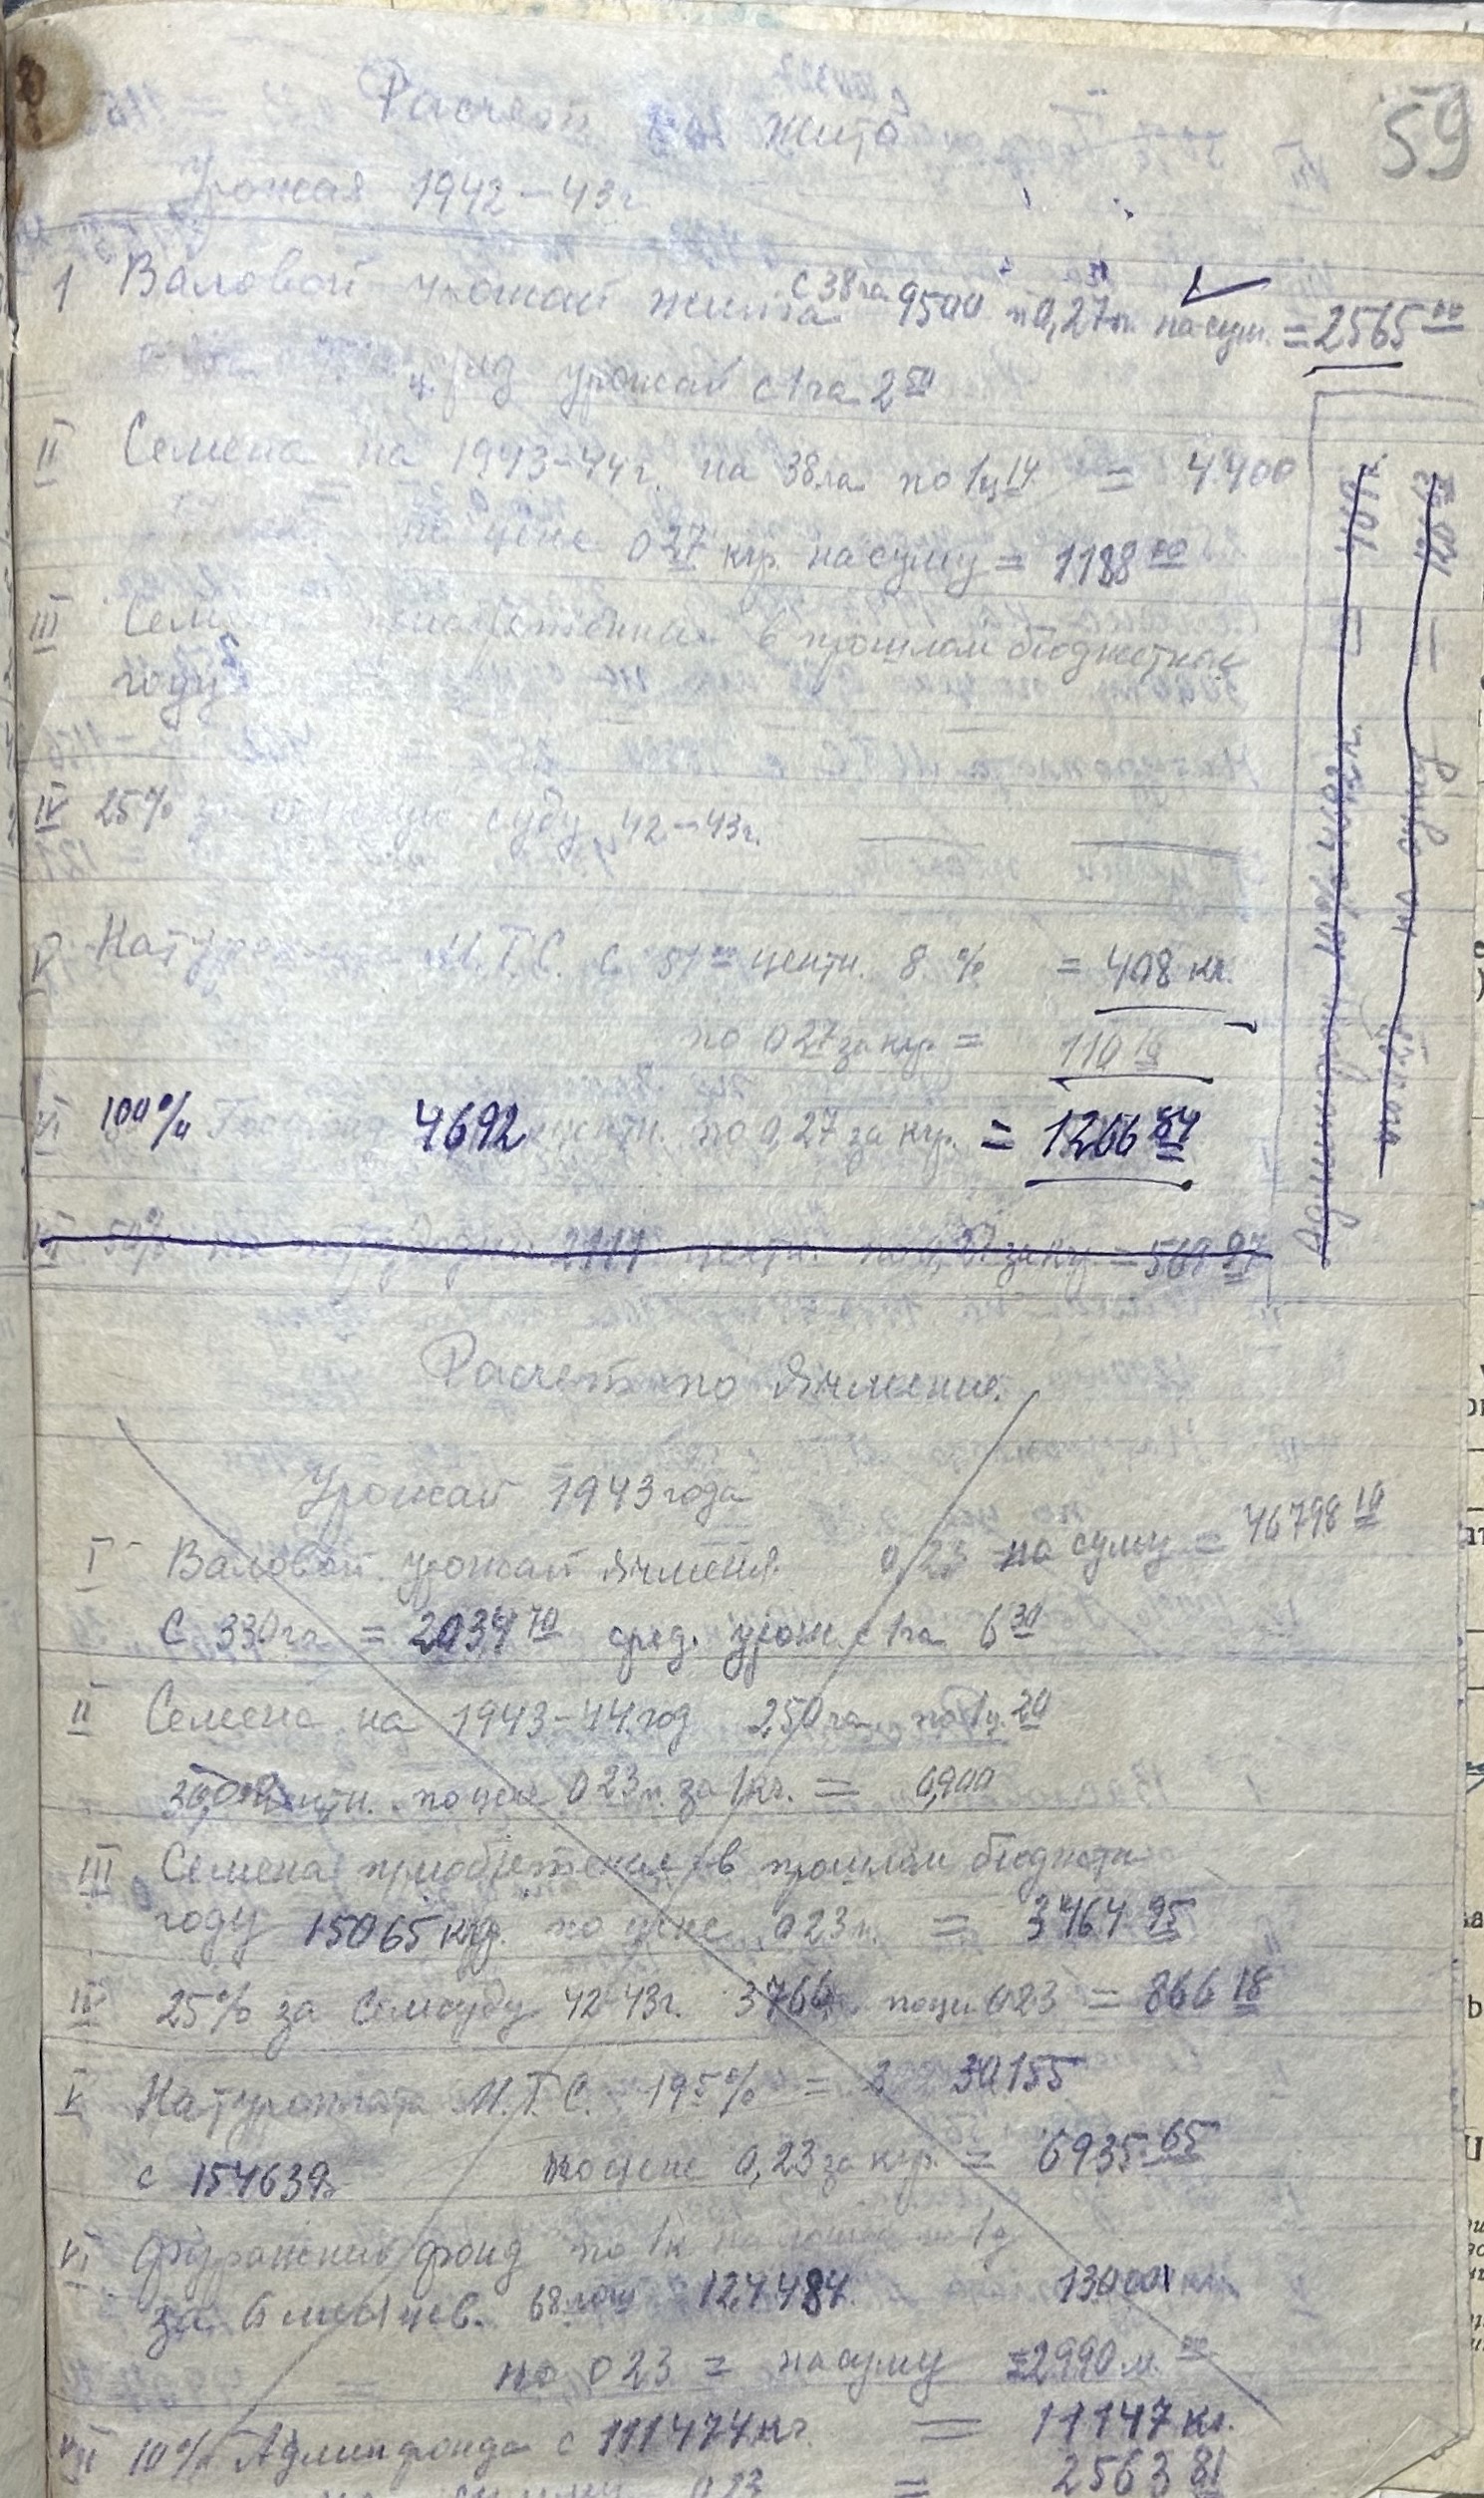 59
Расчет жита
Урожая 1942-43г
1 Валовой урожай жита с 38 га 9500 п 0,27 п. на сум. = 2565 00
сред урожай с 1 га 2 50
II Семена на 1943-44г. на 38 га по 1 ц 14 = 4400
по цене 0 27 кгр. на суму = 1188 00
III Семена приобретенная в прошлом бюджетном
году
IV 25% за семссуду 42-43г.
V Натуроплата М.Т.С. с 51 00 центн. 8 % = 408 кг.
по 0 27 за кгр = 110 16
VI 100% 4692 центн. по 0,27 за кгр. = 1266 84
VII 50% 2111 центн. по 0,27 за кгр = 569 97
Админфонда 10%
Расчет по Ячменю.
Урожай 1943 года
I Валовой урожай Ячменя 0,23 на суму = 46798 10
С 330 га = 2034 70 сред. урож. с 1 га 6 30
II Семена на 1943-44 год 250 га по 1 ц. 20
300 центн. по цене 0 23 п. за 1 кг. = 6900
III Семена приобретения в прошлом бюджетн
году 15065 кгр. по цене 0 23 п. = 3464 95
IV 25% за Семсуду 42-43г. 3766 по цен 0 23 = 866 18
V Натуроплата М.Т.С. 195% = 30155
с 154639 по цене 0,23 за кгр. = 6935 65
VI Фуражний фонд по 1 к на лошадь по 1 д
за 6 месяцев. 68 лош 124484 13000 кг
по 0 23 = на суму = 2990 м. 00
VII 10% Админфонда с 111474 кг. = 11147 кг.
0,23 = 2563 81